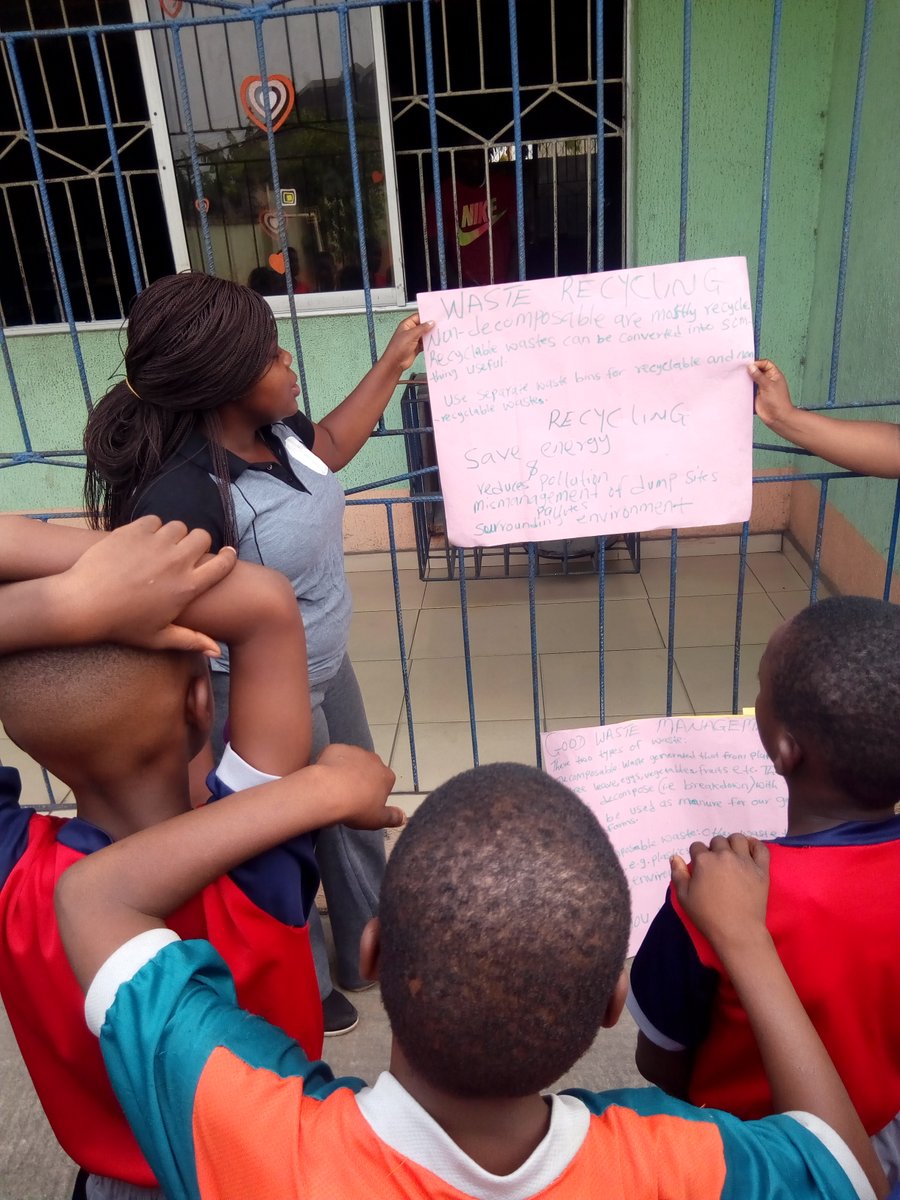 NIKE
WASTE RECYCLING
Non-decomposable are mostly recycle
Recyclable wastes can be converted into som-
thing useful.
Use separate waste bins for recyclable and non
-recyclable wastes.
RECYCLING
Save energy
&
reduces pollution
micmanagement of dump sites
pollutes
surrounding environment
GOOD WASTE MANAGEM
There two types of waste:
decomposable: Waste generated that from plan
eggs, vegetables, fruits etc. Th
decompose (i.e breakdown) with
be used as manure for our g
farms.
mposable waste: Other waste
e.g. plastic
enviro
YOU